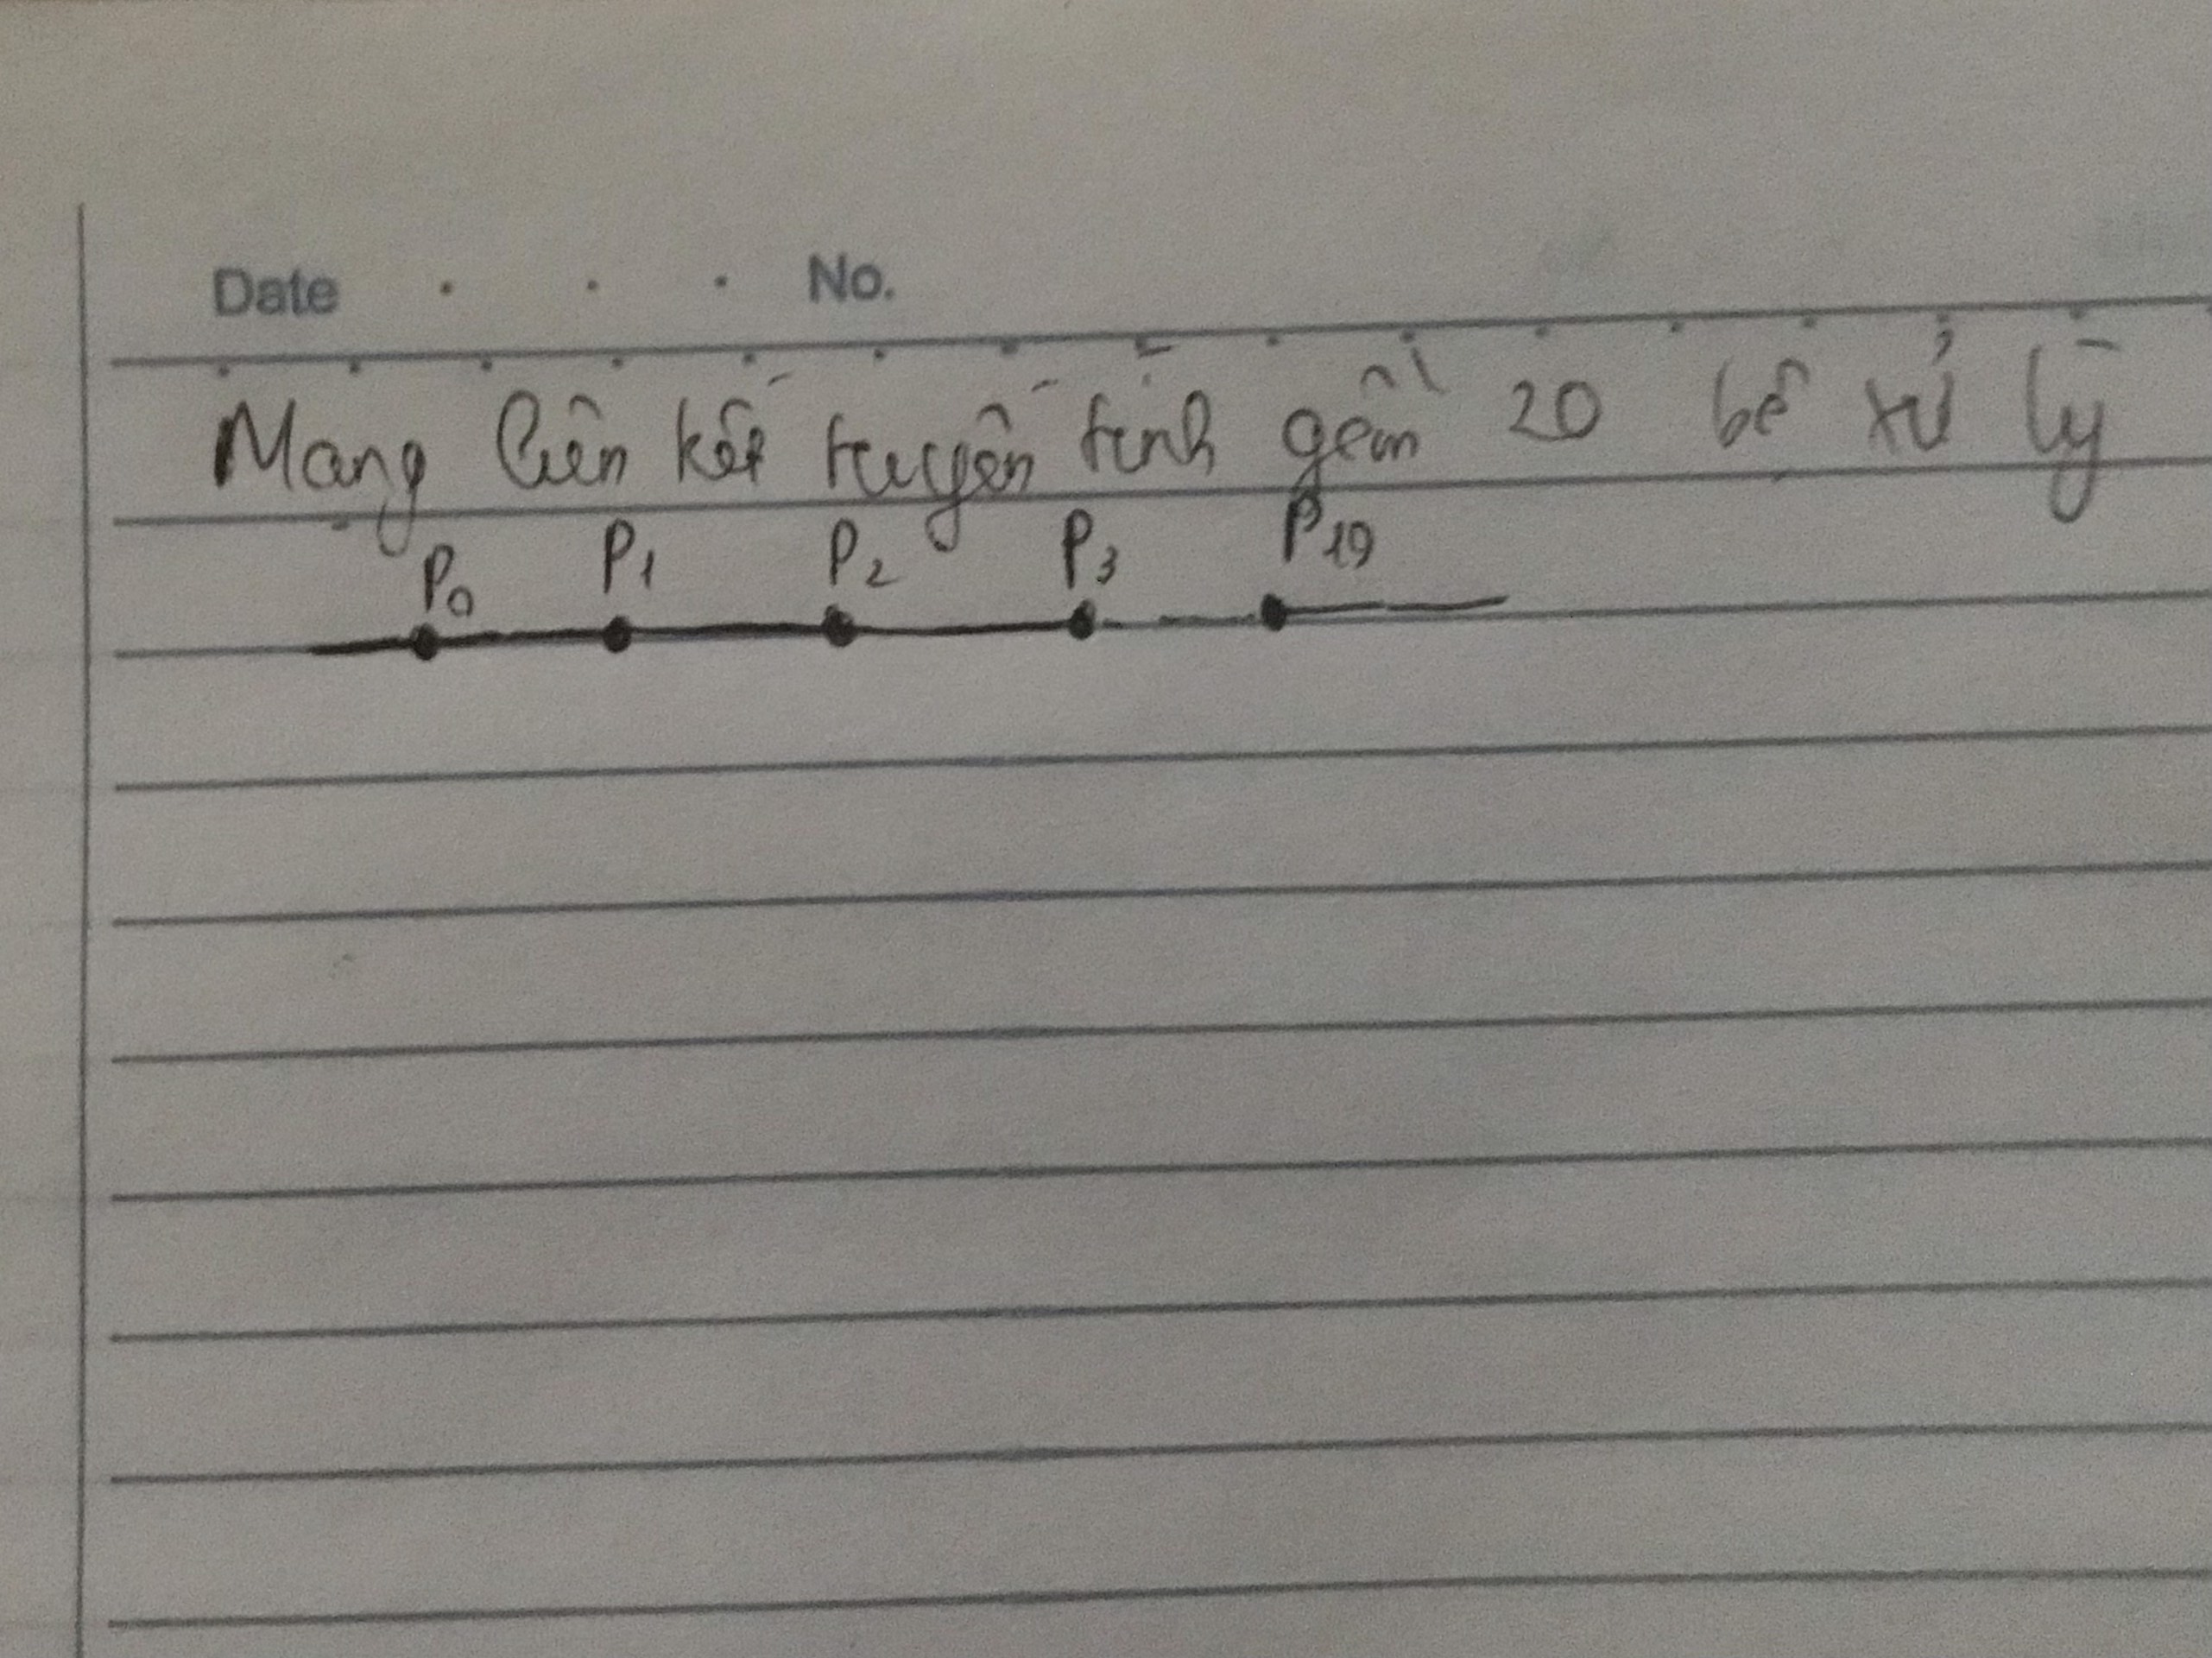 Date . . . No.
Mạng liên kết tuyến tính gồm 20 bộ xử lý
P0 P1 P2 P3 P19